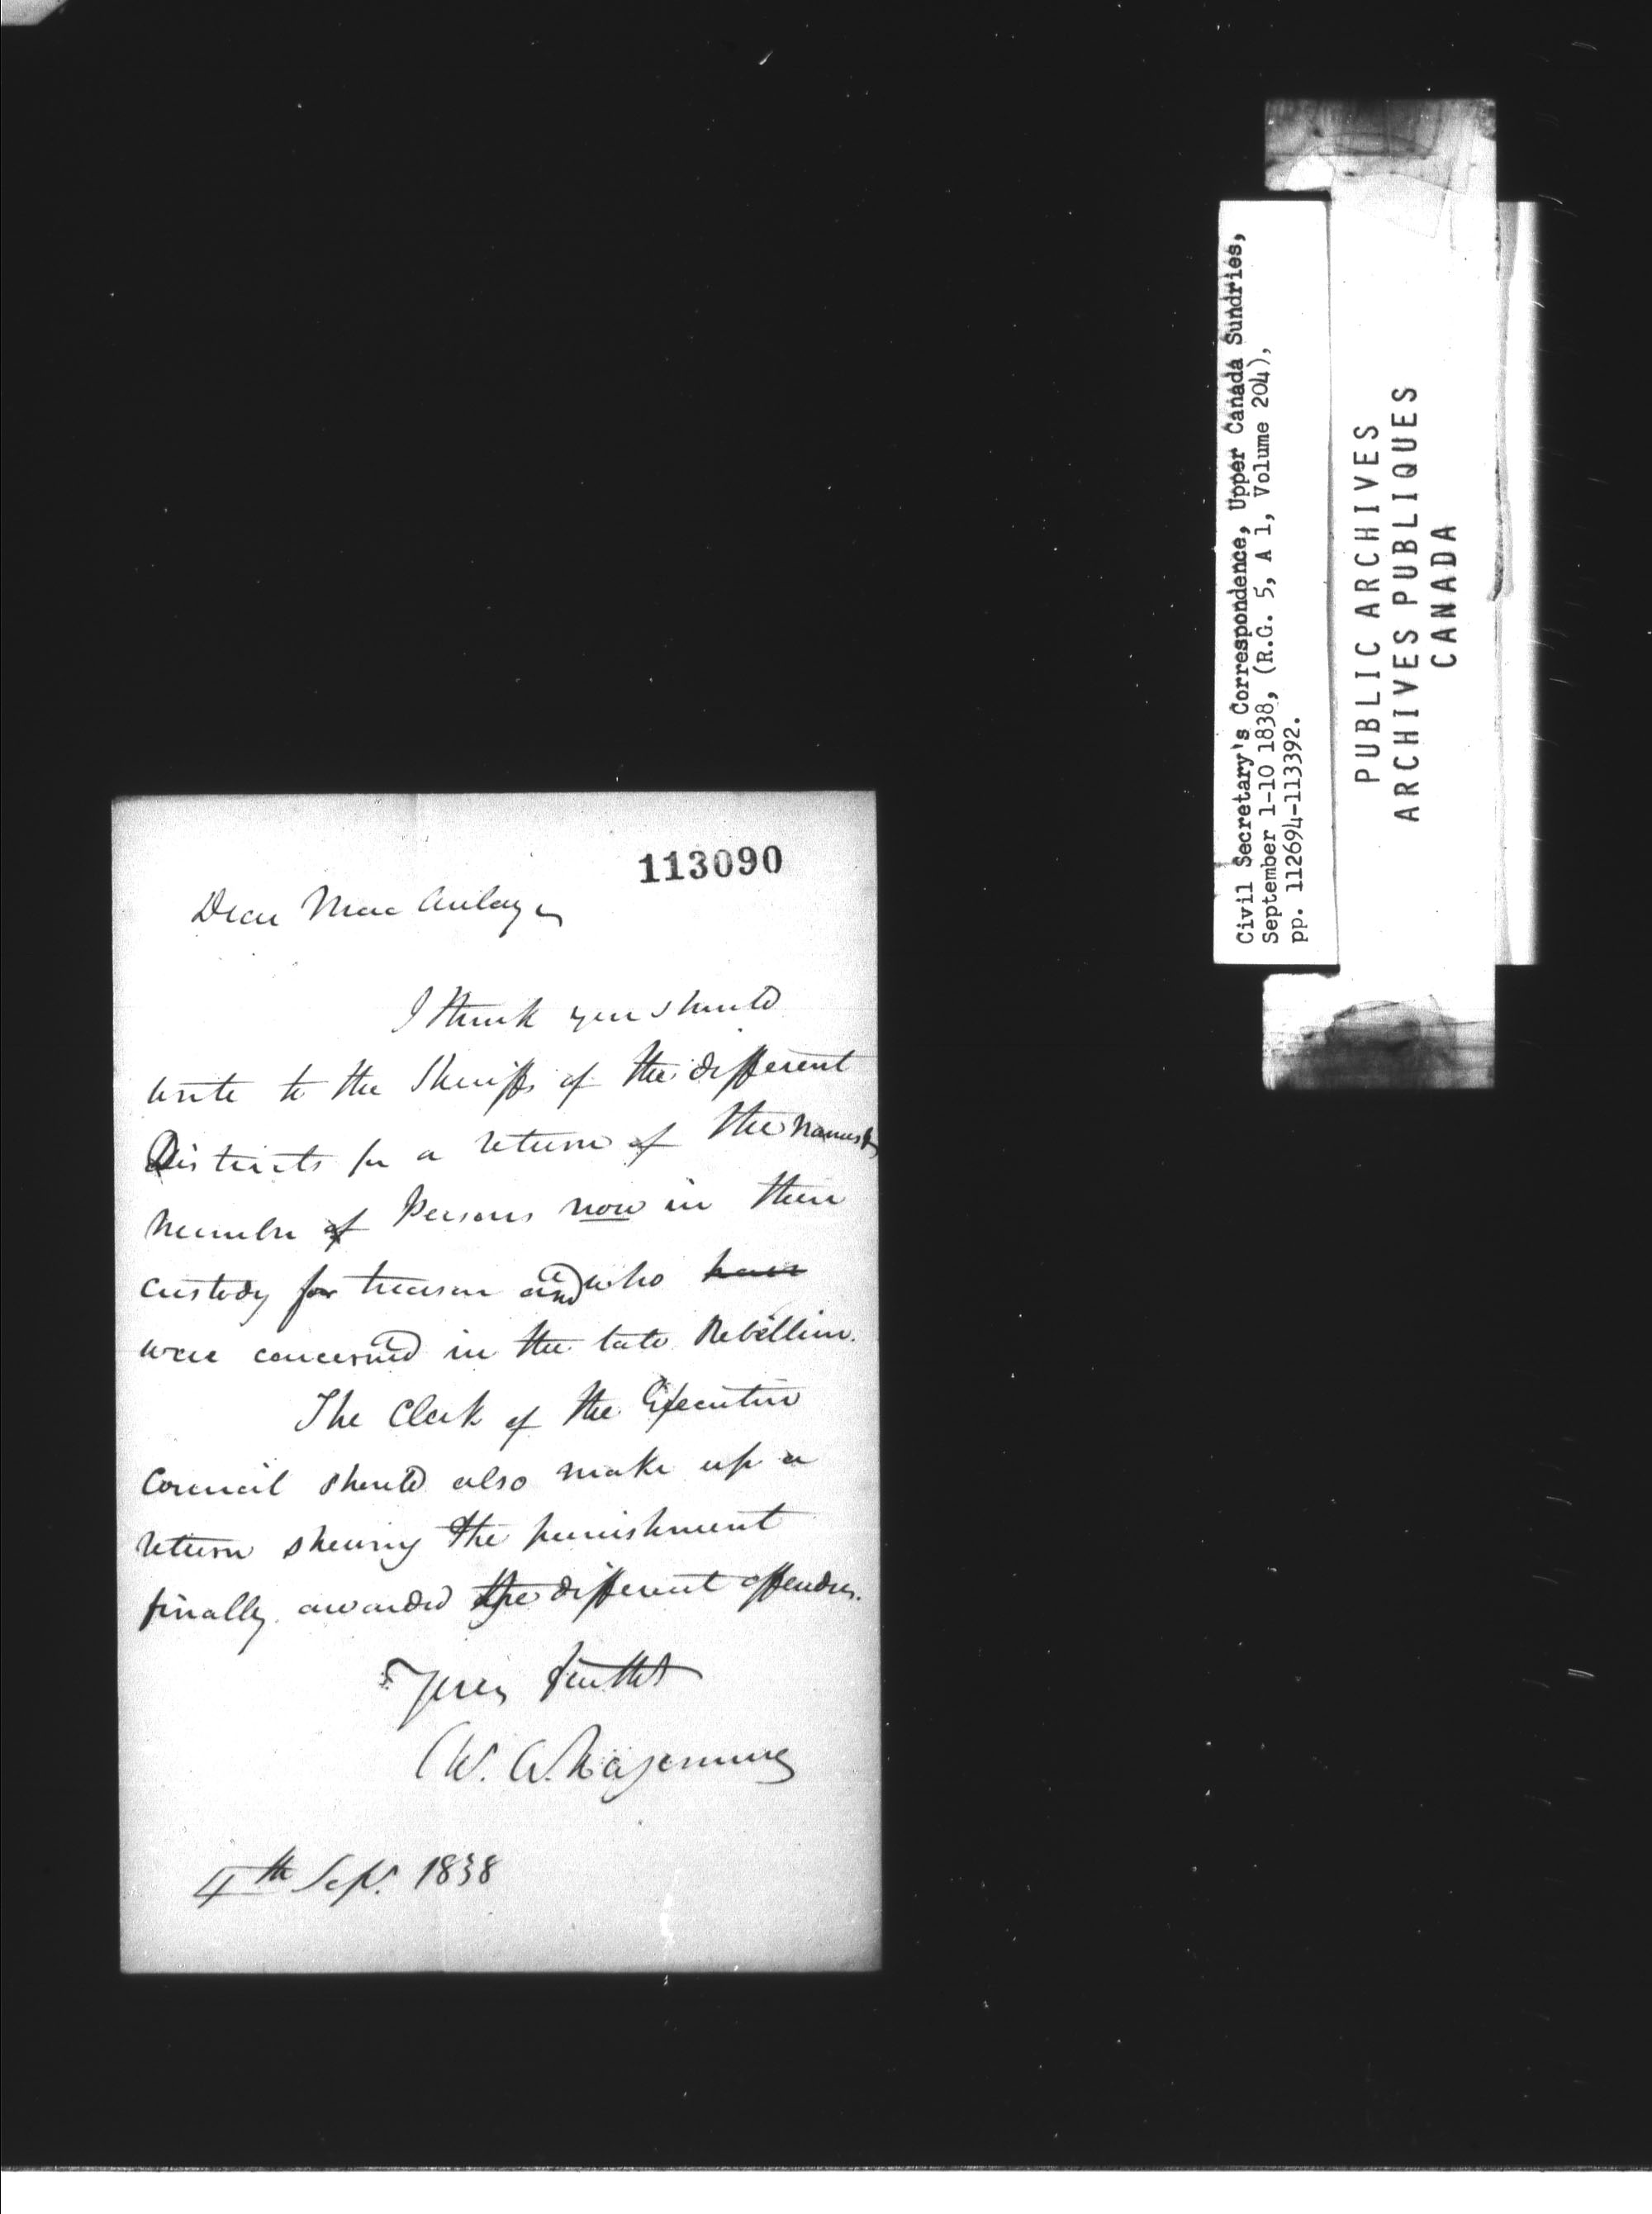 113090
Dear MacAulay
I think you should
write to the Sheriffs of the different
Districts for a return of the names &
number of Persons now in their
custody for treason and who have
were concerned in the late Rebellion.
The Clerk of the Executive
Council should also make up a
return shewing the punishment
finally awarded the different offenders.
Yours
W. A.
4th Sept. 1838
Civil Secretary's Correspondence, Upper Canada Sundries,
September 1-10 1838, (R.G. 5, A 1, Volume 204),
pp. 112694-113392.
PUBLIC ARCHIVES
ARCHIVES PUBLIQUES
CANADA